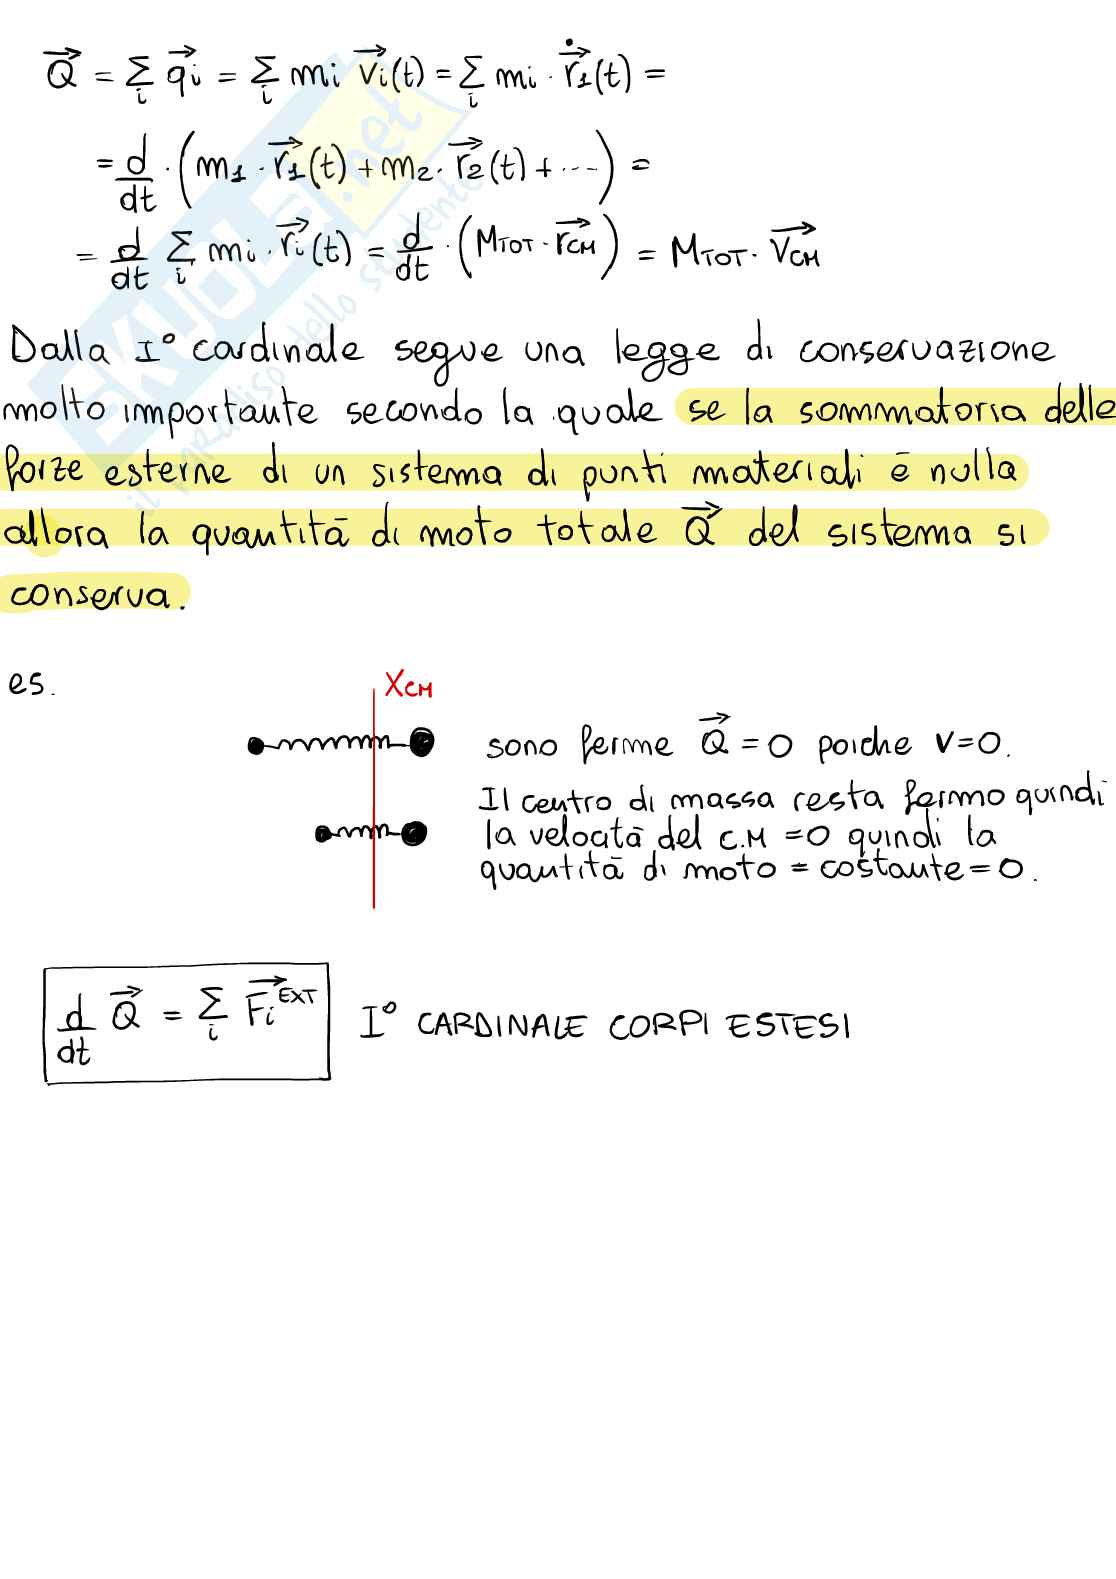 Q⃗ = Σᵢ q⃗ᵢ = Σᵢ mi v⃗i(t) = Σᵢ mi · ṙ⃗1(t) =
= d/dt · (m1 · r⃗1(t) + m2 · r⃗2(t) + ····) =
= d/dt Σᵢ mi · r⃗i(t) = d/dt · (MTOT · r⃗CM) = MTOT · V⃗CM
Dalla I° cardinale segue una legge di conservazione
molto importante secondo la quale se la sommatoria delle
forze esterne di un sistema di punti materiali è nulla
allora la quantità di moto totale Q⃗ del sistema si
conserva.
es.
XCM
sono ferme Q⃗ = 0 poiche v=0.
Il centro di massa resta fermo quindi
la velocità del c.M = 0 quindi la
quantità di moto = costante = 0.
d/dt Q⃗ = Σᵢ F⃗iᴱˣᵀ I° CARDINALE CORPI ESTESI
SKUOLA.net
il paradiso dello studente